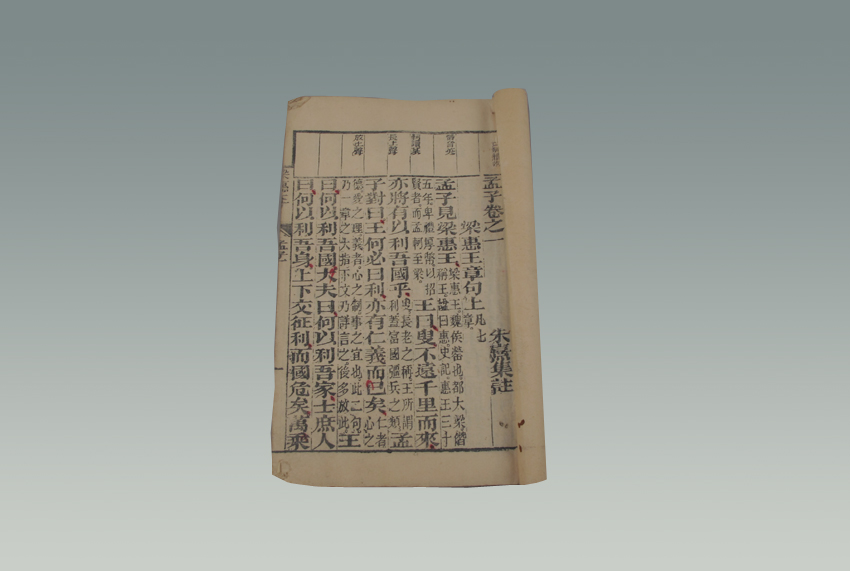 孟子卷之一
朱熹集註
梁惠王章句上 凡七章
孟子見梁惠王 梁惠王魏侯罃也都大梁僭稱王諡曰惠史記惠王三十
五年卑禮厚幣以招賢者而孟軻至梁 王曰叟不遠千里而來
亦將有以利吾國乎 叟長老之稱王所謂利蓋富國彊兵之類 孟
子對曰王何必曰利亦有仁義而已矣 仁者心之
德愛之理義者心之制事之宜也此二句乃一章之大指下文乃詳言之後多放此 王
曰何以利吾國大夫曰何以利吾家士庶人
曰何以利吾身上下交征利而國危矣萬乘